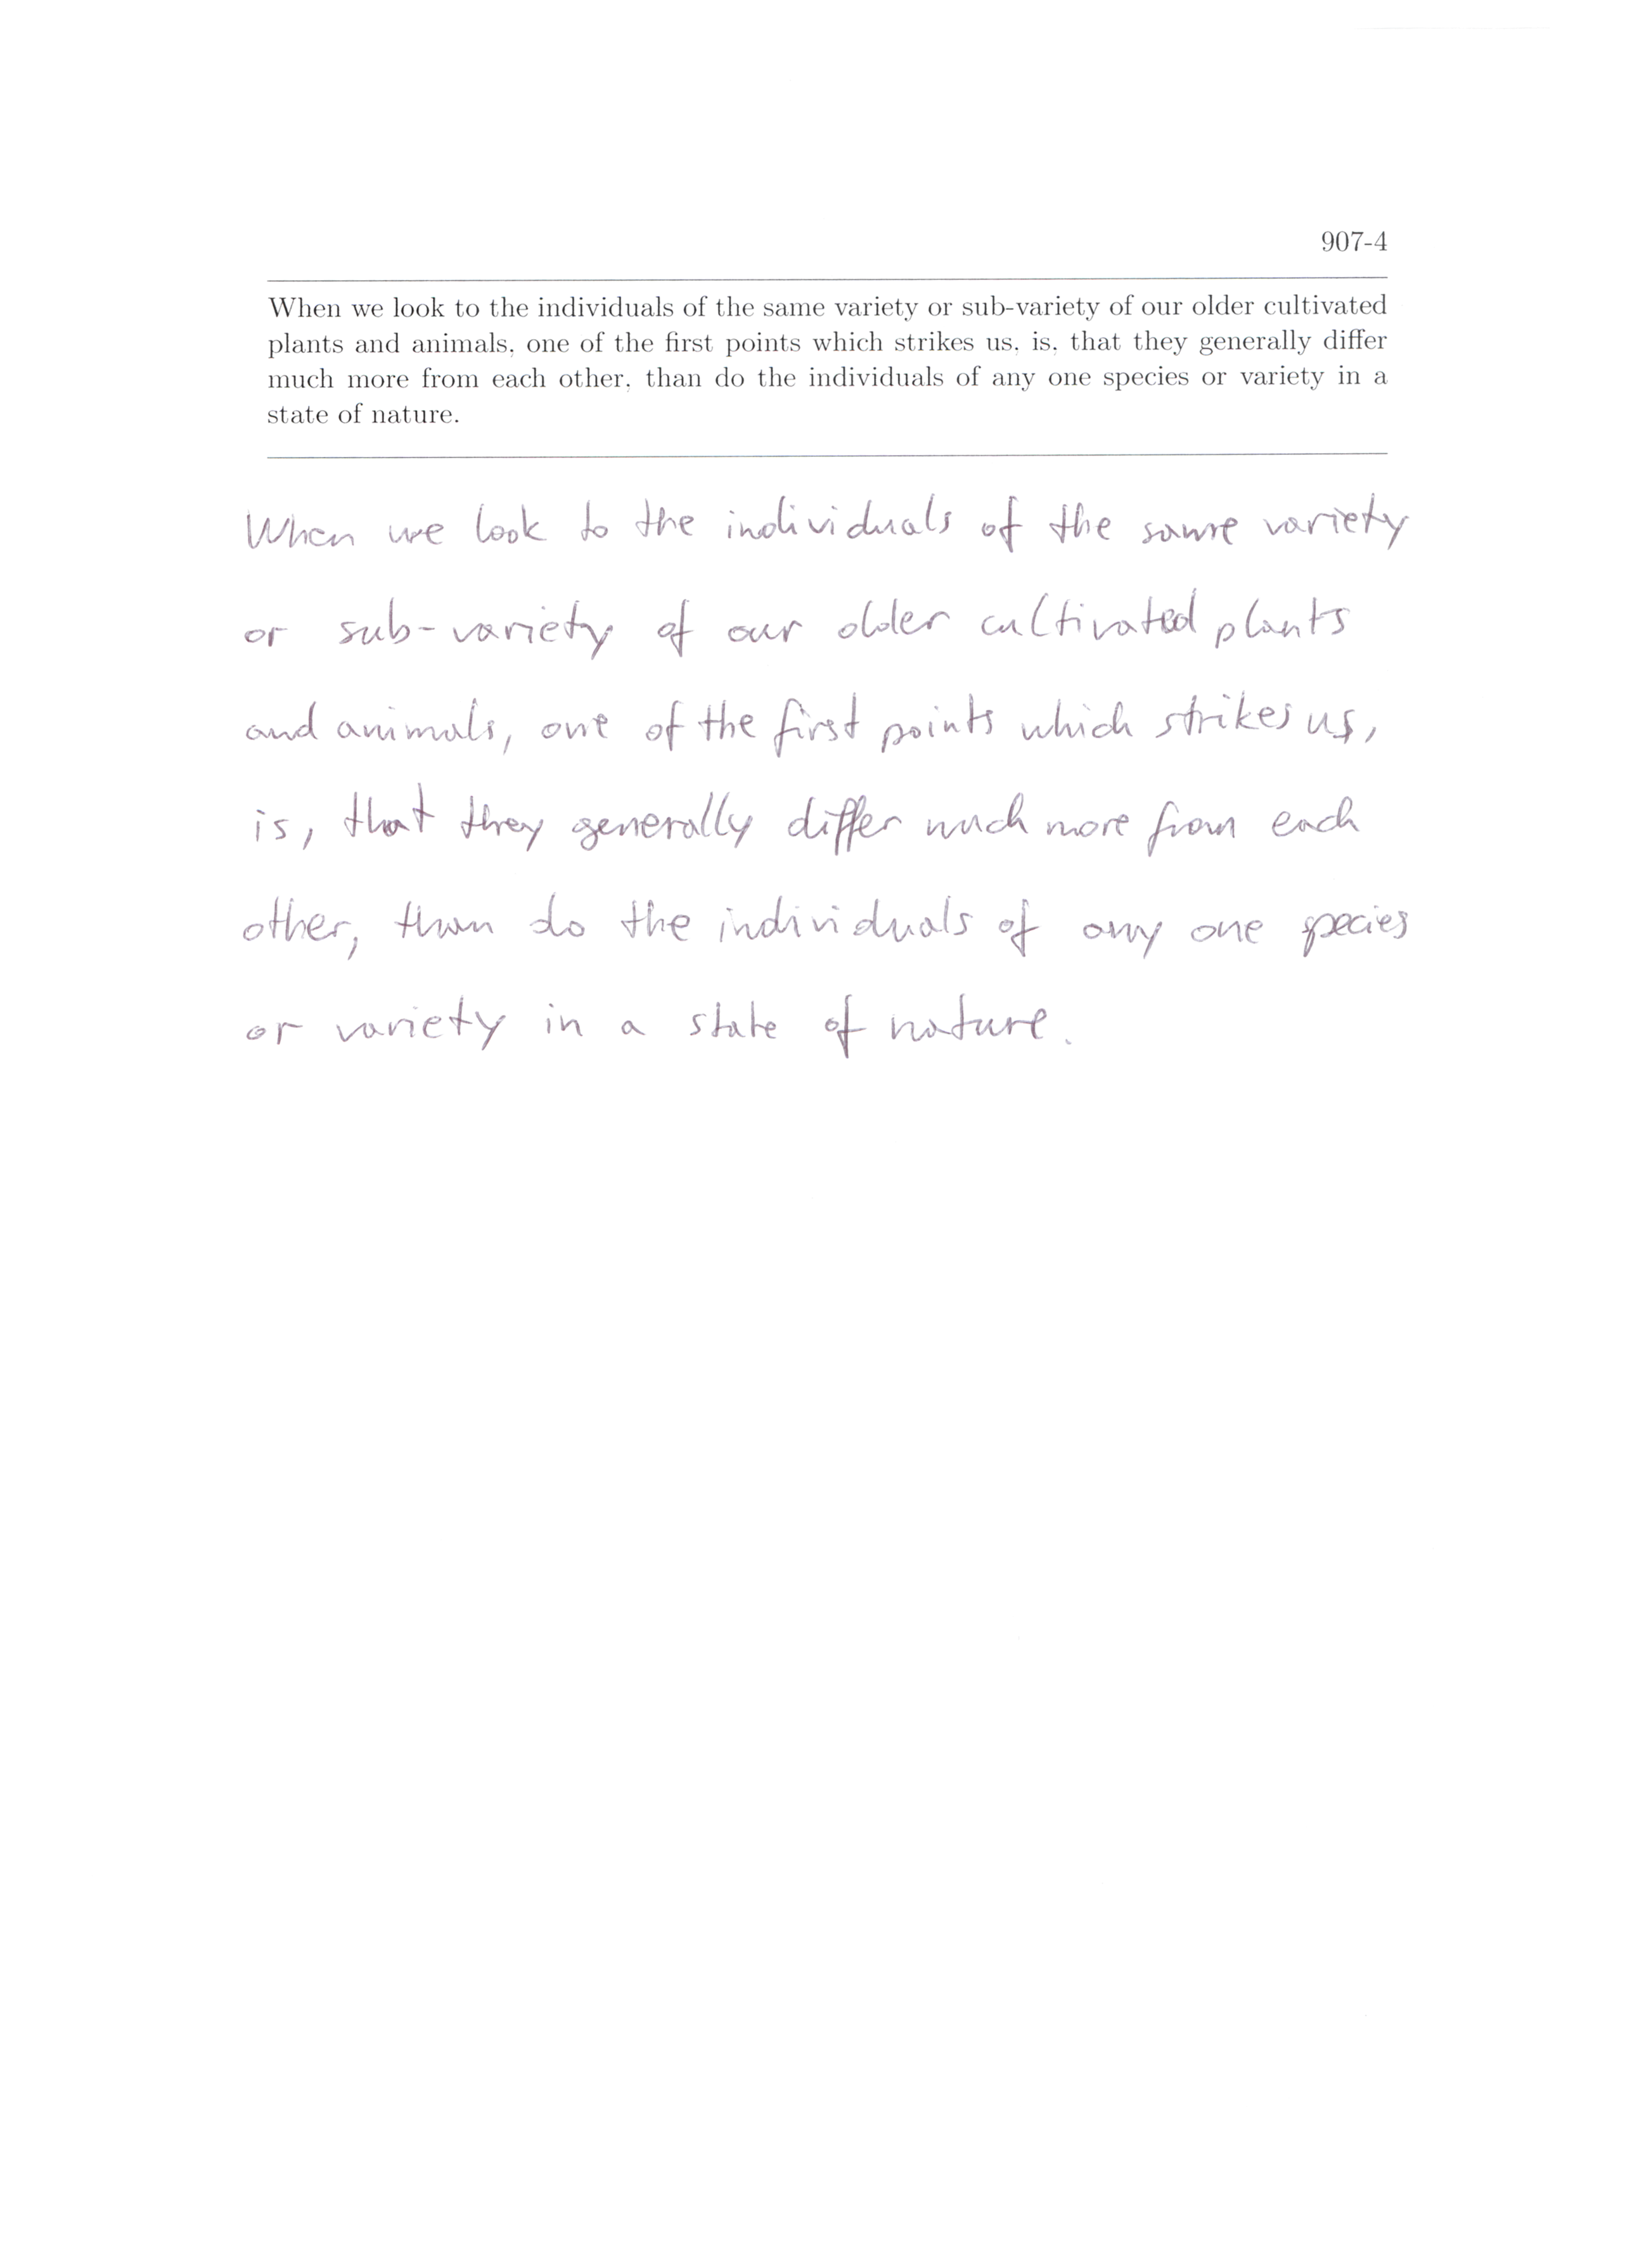 907-4
When we look to the individuals of the same variety or sub-variety of our older cultivated
plants and animals, one of the first points which strikes us, is, that they generally differ
much more from each other, than do the individuals of any one species or variety in a
state of nature.
When we look to the individuals of the same variety
or sub-variety of our older cultivated plants
and animals, one of the first points which strikes us,
is, that they generally differ much more from each
other, than do the individuals of any one species
or variety in a state of nature.